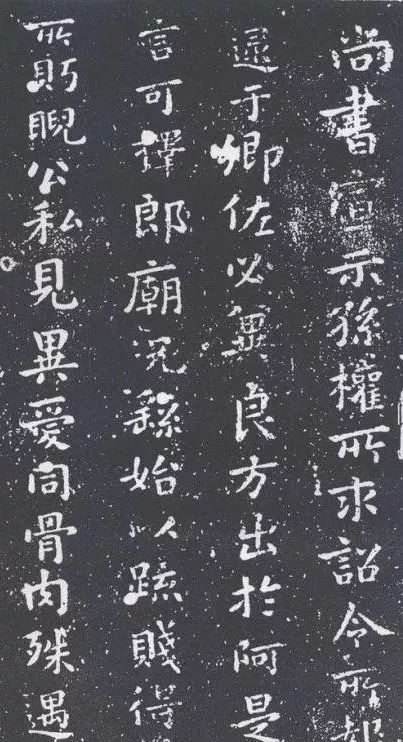 尚書宣示孫權所求詔令所報
逮于卿佐必冀良方出於阿是
言可擇郎廟況繇始以疏賤得
所盱睨公私見異愛同骨肉殊遇